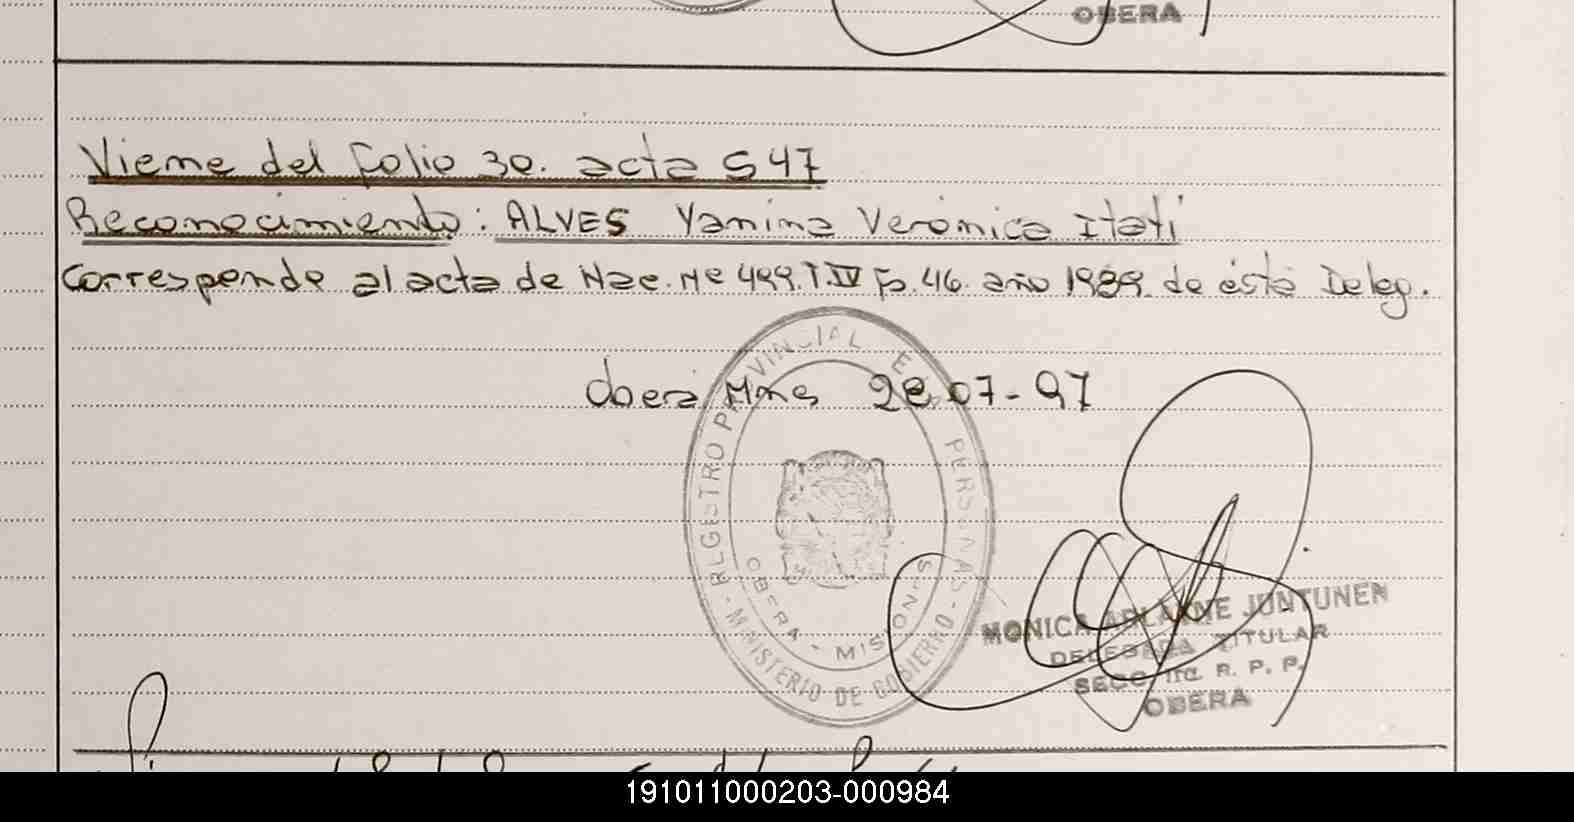 OBERA
Viene del Folio 30. acta 547
Reconocimiento: ALVES Yanina Verónica Itatí
Corresponde al acta de Nac. Nº 499. T. IV Fº. 46. año 1989. de ésta Deleg.
Oberá Mnes 28.07-97
REGISTRO PROVINCIAL DE PERSONAS - MINISTERIO DE GOBIERNO -
OBERA - MISIONES
MONICA ARIANNE JUNTUNEN
DELEGADA TITULAR
SECC. R. P. P.
OBERA
191011000203-000984